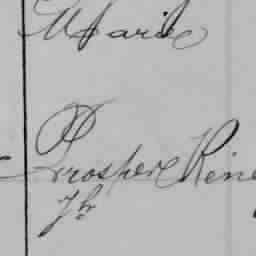 Marie
Prosper René
Jh